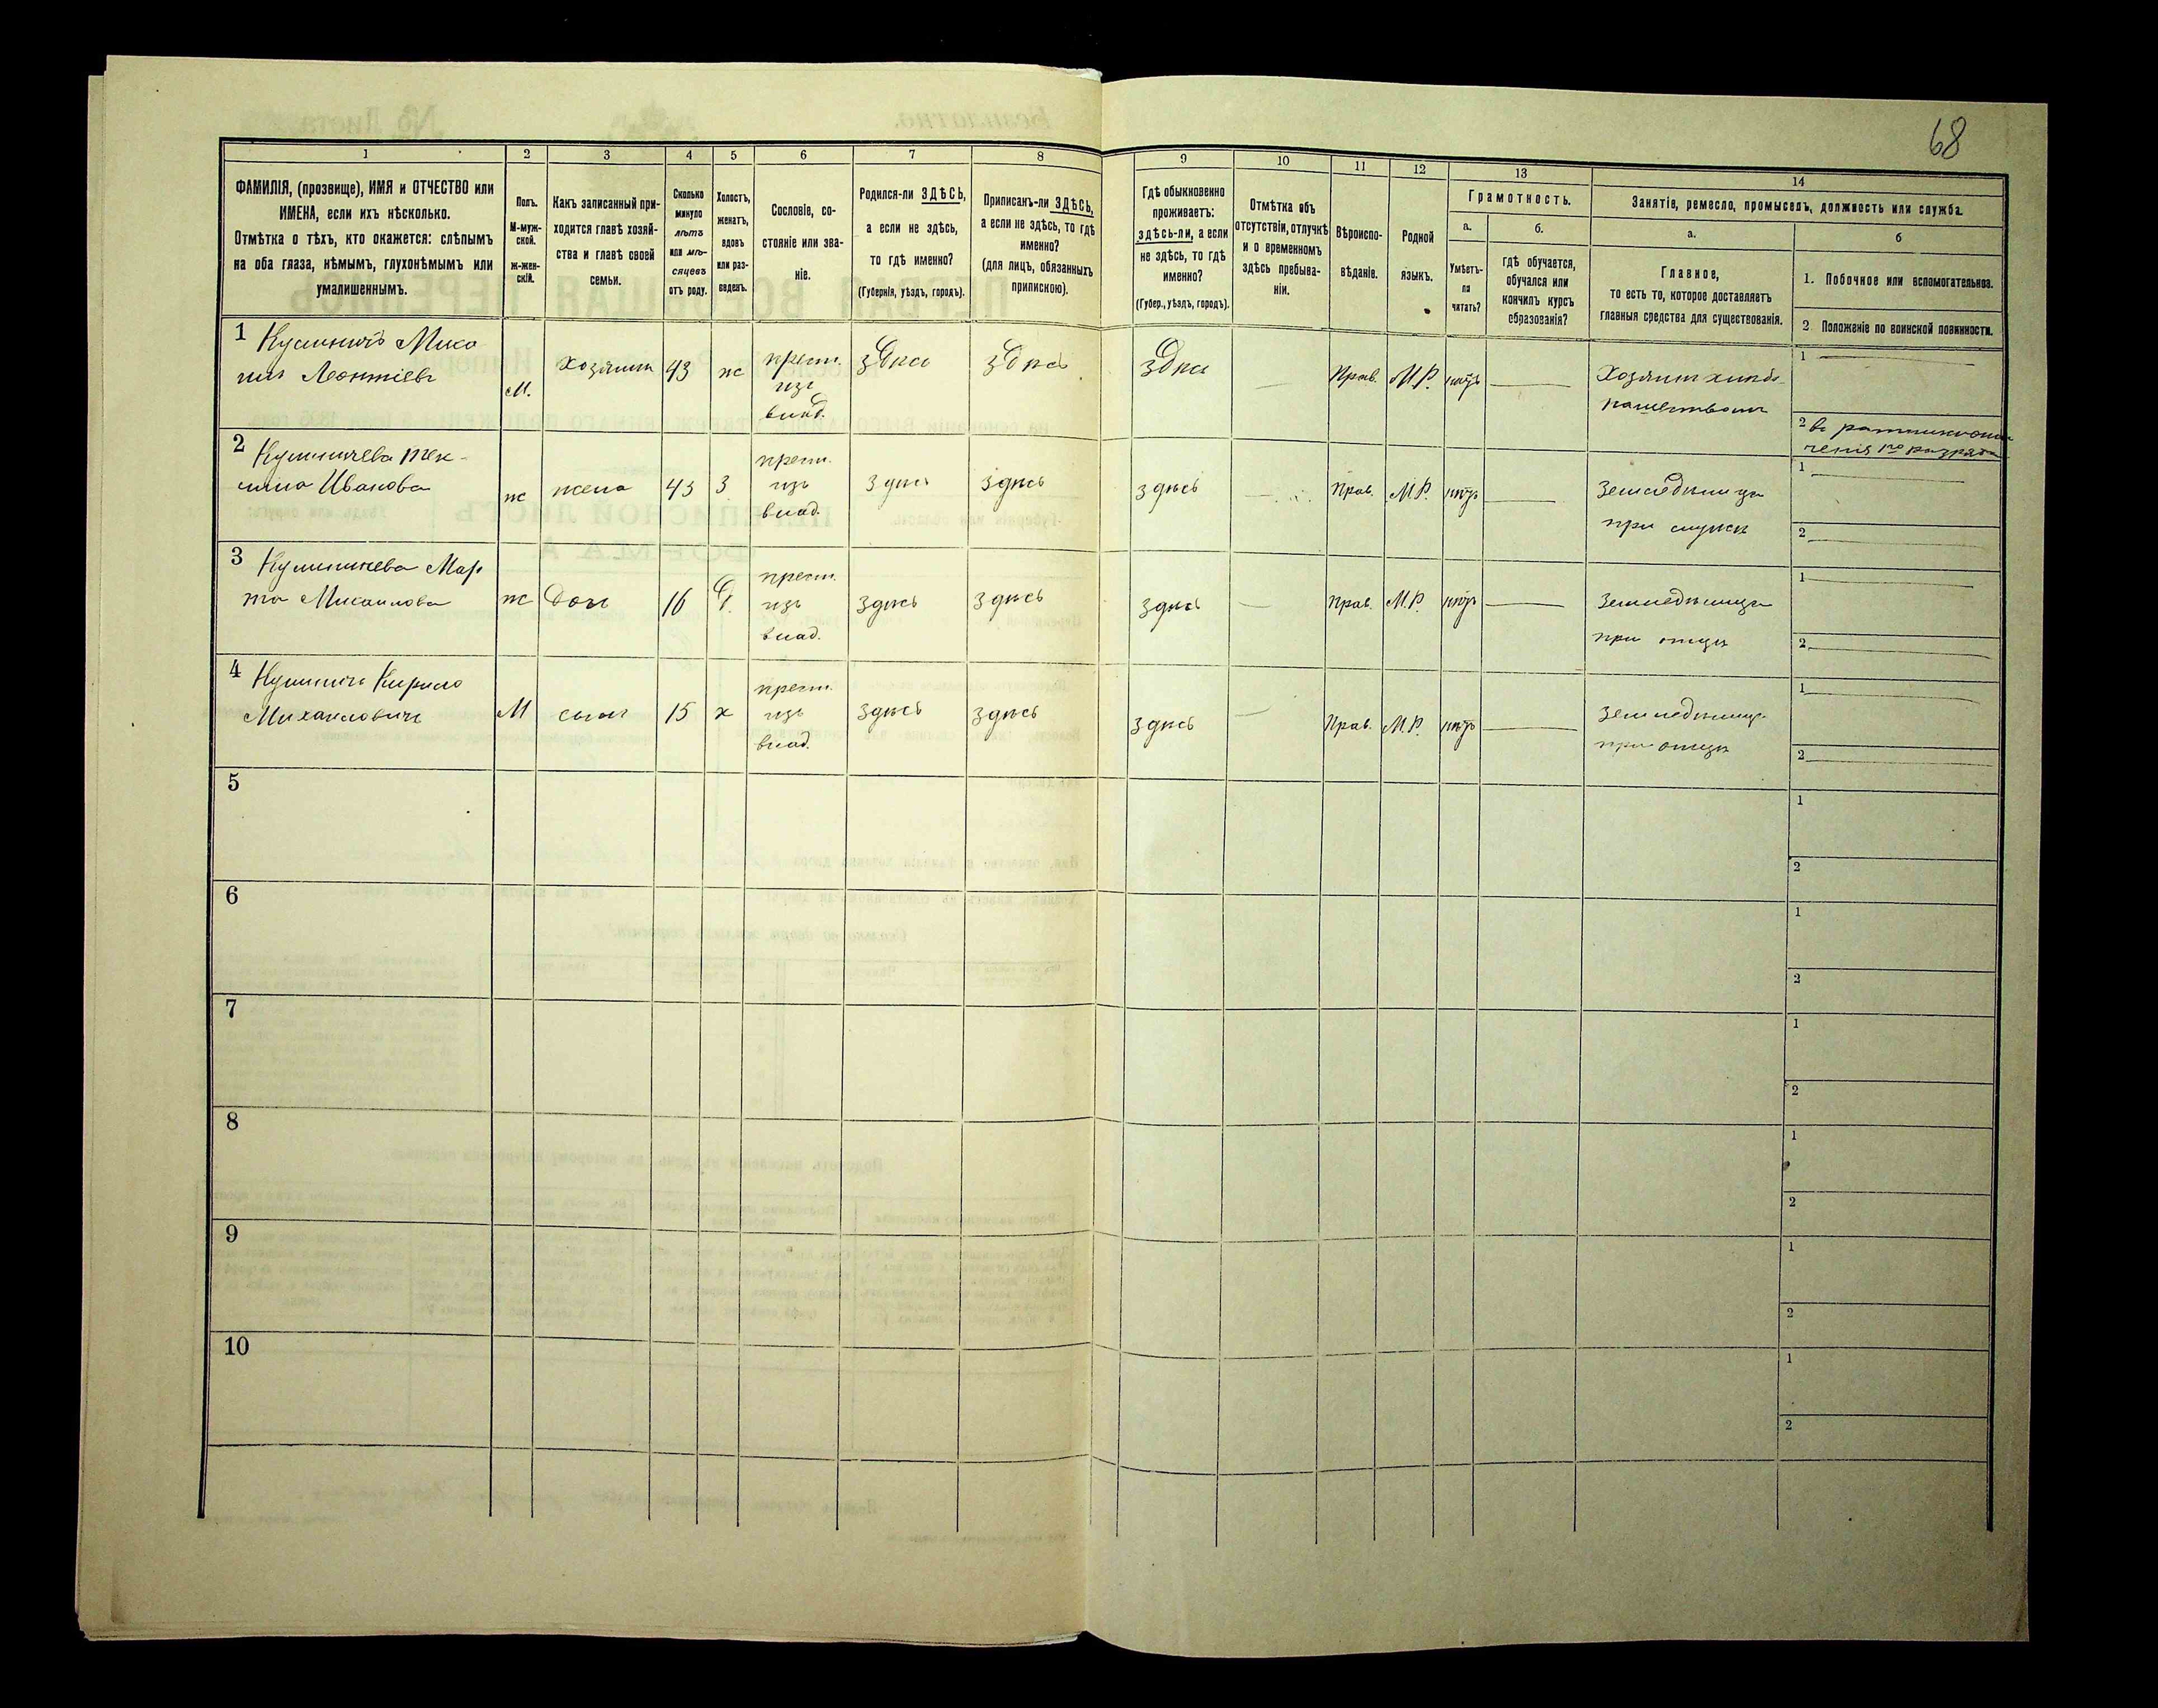 68
1 2 3 4 5 6 7 8 9 10 11 12 13 14
ФАМИЛІЯ, (прозвище), ИМЯ и ОТЧЕСТВО или
ИМЕНА, если ихъ нѣсколько.
Отмѣтка о тѣхъ, кто окажется: слѣпымъ
на оба глаза, нѣмымъ, глухонѣмымъ или
умалишеннымъ.
Полъ.
М-муж-
ской.
ж-жен-
скій.
Какъ записанный при-
ходится главѣ хозяй-
ства и главѣ своей
семьи.
Сколько
минуло
лѣтъ
или мѣ-
сяцевъ
отъ роду.
Холостъ,
женатъ,
вдовъ
или раз-
веденъ.
Сословіе, со-
стояніе или зва-
ніе.
Родился-ли ЗДѢСЬ,
а если не здѣсь,
то гдѣ именно?
(Губернія, уѣздъ, городъ).
Приписанъ-ли ЗДѢСЬ,
а если не здѣсь, то гдѣ
именно?
(для лицъ, обязанныхъ
припискою).
Гдѣ обыкновенно
проживаетъ:
здѣсь-ли, а если
не здѣсь, то гдѣ
именно?
(Губер., уѣздъ, городъ).
Отмѣтка объ
отсутствіи, отлучкѣ
и о временномъ
здѣсь пребыва-
ніи.
Вѣроиспо-
вѣданіе.
Родной
языкъ.
Грамотность.
а.
Умѣетъ-
ли
читать?
б.
гдѣ обучается,
обучался или
кончилъ курсъ
образованія?
Занятіе, ремесло, промыселъ, должность или служба.
а.
Главное,
то есть то, которое доставляетъ
главныя средства для существованія.
б
1. Побочное или вспомогательное.
2 Положеніе по воинской повинности.
1
Леонтіевъ
М.
Хозяинъ
43
ж
крест.
изъ
влад.
здѣсь
здѣсь
здѣсь
Прав.
М.Р.
нѣтъ
1
2
2
Иванова
ж
жена
43
З
крест.
изъ
влад.
здѣсь
здѣсь
здѣсь
Прав.
М.Р.
нѣтъ
1
2
3
Михаилова
ж
дочь
16
Д.
крест.
изъ
влад.
здѣсь
здѣсь
здѣсь
Прав.
М.Р.
нѣтъ
при отцѣ
1
2
4 Кирило
Михайловичъ
М
сынъ
15
х
крест.
изъ
влад.
здѣсь
здѣсь
здѣсь
Прав.
М.Р.
нѣтъ
при отцѣ
1
2
5
1
2
6
1
2
7
1
2
8
1
2
9
1
2
10
1
2